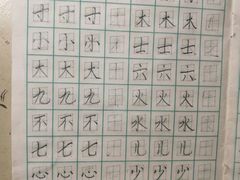 寸 寸 寸 木 木 木
小 小 小 士 士 士
大 大 大 六 六 六
九 九 九 火 火 火
不 不 不 水 水 水
七 七 七 儿 儿 儿
心 心 心 少 少 少